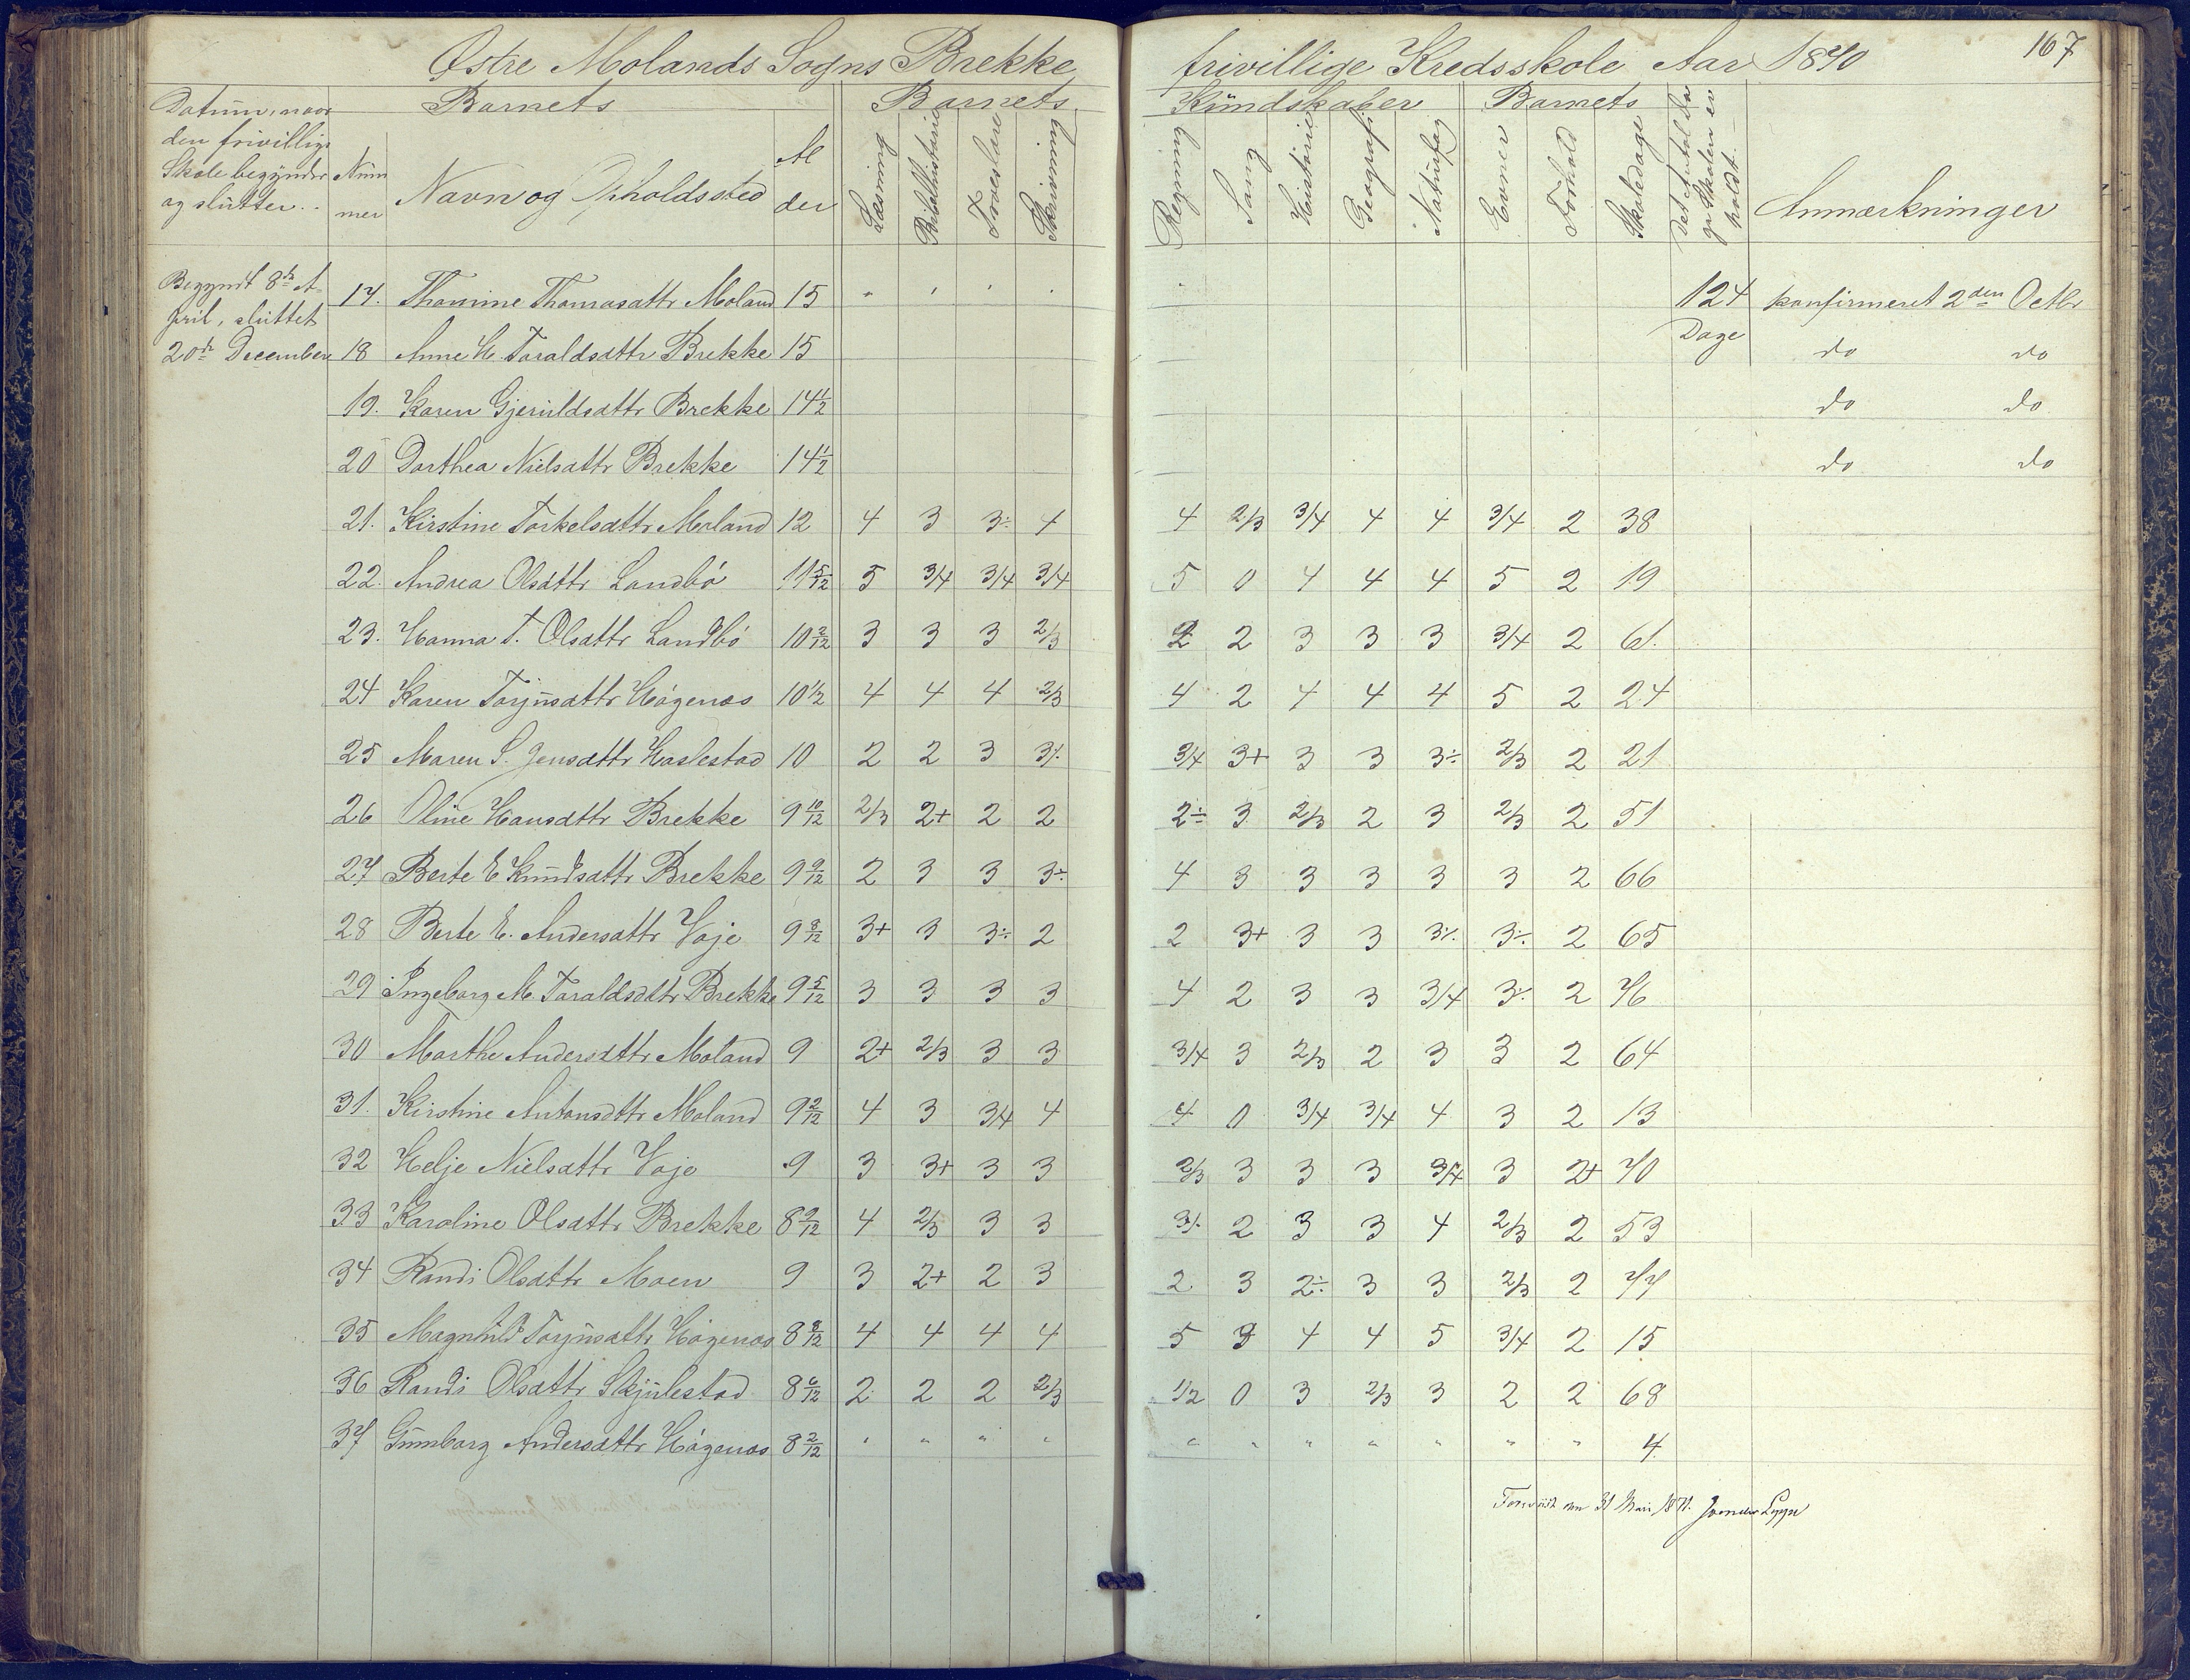 Østre Molands Sogns Brekke frivillige Kredsskole Aar 1870 167
Datum, naar den frivillige Skole begynder og slutter. Barnets Barnets Kundskaber Barnets Det Antal Dage Skolen er holdt. Anmærkninger
Nummer Navn og Opholdssted Alder Læsning Bibelhistorie Troeslære Skrivning Regning Sang Historie Geografi Naturfag Evner Forhold Skoledage
Begyndt 8de April, sluttet 20de December
17. Thomine Thomasdttr Moland 15 " " " " 124 Dage konfirmeret 2den Octbr
18 Anne M. Taraldsdttr Brekke 15 do do
19. Karen Gjeruldsdttr Brekke 14 1/2 do do
20 Dorthea Nielsdttr Brekke 14 1/2 do do
21. Kirstine Torkelsdttr Moland 12 4 3 3÷ 4 4 2/3 3/4 4 4 3/4 2 38
22. Andrea Olsdttr Landbö 11 5/12 5 3/4 3/4 3/4 5 0 4 4 4 5 2 19
23. Hanna T. Olsdttr Landbö 10 2/12 3 3 3 2/3 2 2 3 3 3 3/4 2 61.
24 Karen Torjusdttr Högenæs 10 1/2 4 4 4 2/3 4 2 4 4 4 5 2 24
25 Maren S. Jensdttr Haslestad 10 2 2 3 3÷ 3/4 3+ 3 3 3÷ 2/3 2 21
26 Oline Hansdttr Brekke 9 10/12 2/3 2+ 2 2 2÷ 3 2/3 2 3 2/3 2 51
27 Berte E Knudsdttr Brekke 9 9/12 2 3 3 3÷ 4 3 3 3 3 3 2 66
28 Berte E. Andersdttr Voje 9 8/12 3+ 3 3÷ 2 2 3+ 3 3 3÷ 3÷ 2 65
29 Ingeborg M. Taraldsdttr Brekke 9 5/12 3 3 3 3 4 2 3 3 3/4 3÷ 2 76
30 Marthe Andersdttr Moland 9 2+ 2/3 3 3 3/4 3 2/3 2 3 3 2 64
31. Kirstine Antonsdttr Moland 9 2/12 4 3 3/4 4 4 0 3/4 3/4 4 3 2 13
32 Helje Nielsdttr Voje 9 3 3+ 3 3 2/3 3 3 3 3/4 3 2+ 70
33 Karoline Olsdttr Brekke 8 9/12 4 2/3 3 3 3÷ 2 3 3 4 2/3 2 53
34 Randi Olsdttr Moen 9 3 2+ 2 3 2 3 2÷ 3 3 2/3 2 77
35 Magnhild Torjusdttr Högenæs 8 8/12 4 4 4 4 5 3 4 4 5 3/4 2 15
36 Randi Olsdttr Skjulestad 8 6/12 2 2 2 2/3 1/2 0 3 2/3 3 2 2 68
37 Gunborg Andersdttr Högenæs 8 2/12 " " " " " " " " " " " 4
31 Mai 1871.